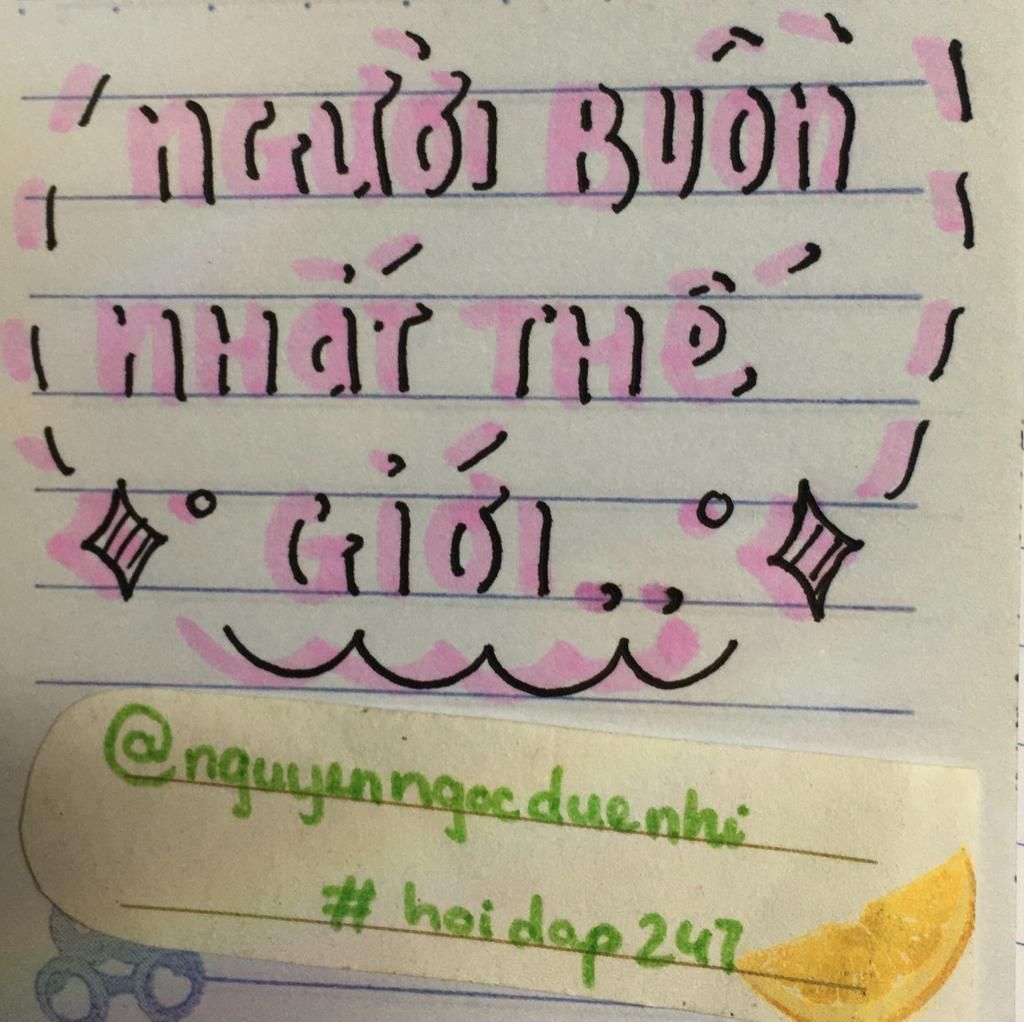 NGƯỜI BUỒN
NHấT THẾ
GIỚI,,
@nguyenngocduenhi
#hoidap247